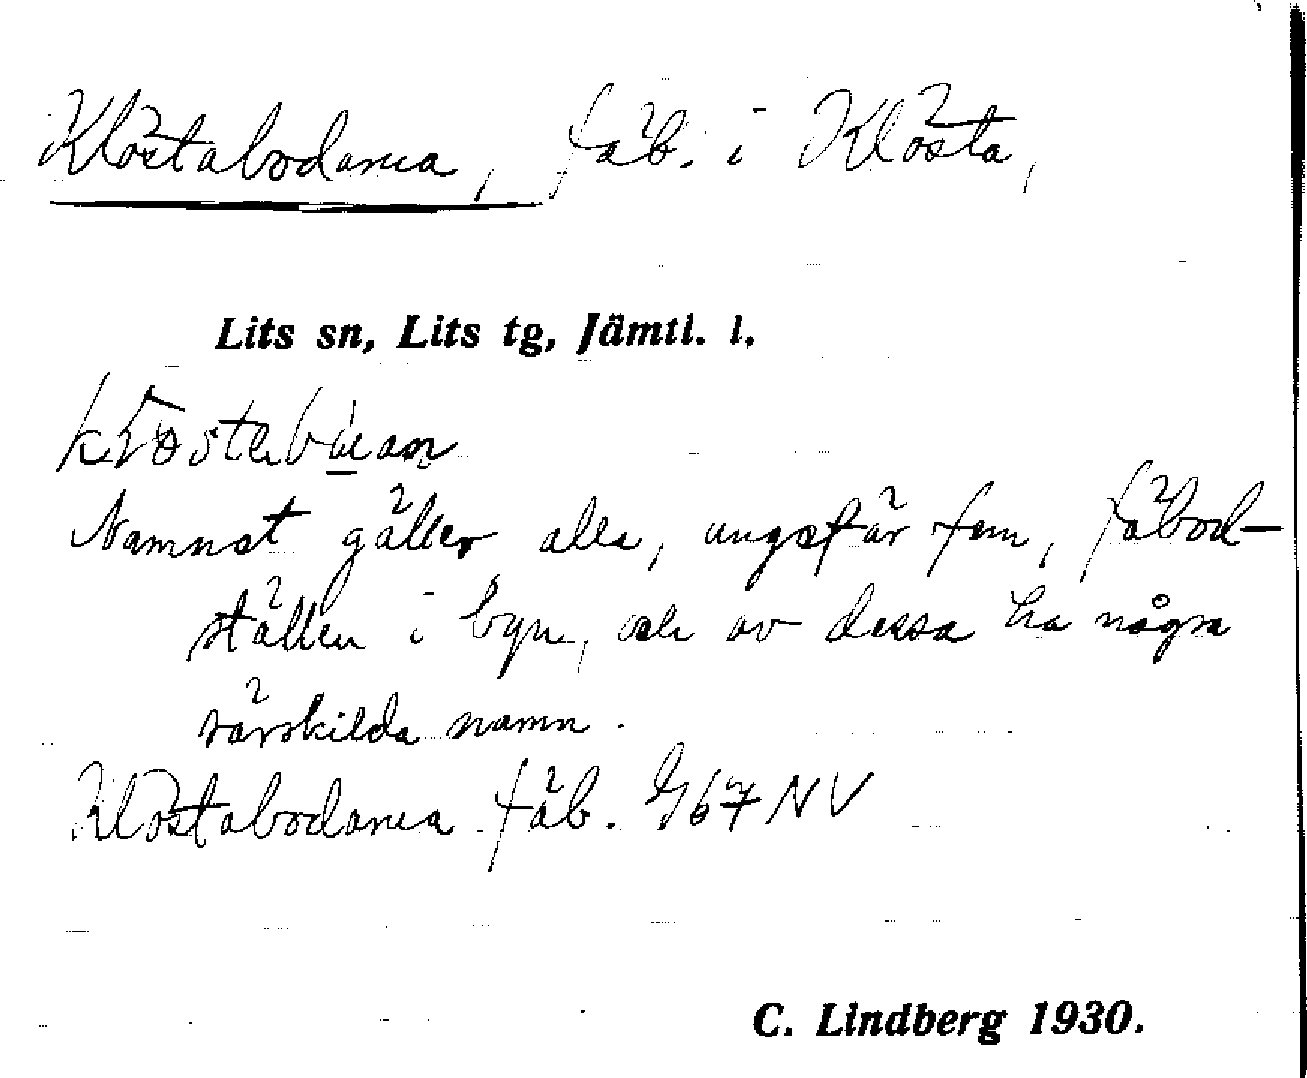 Klöstabodarna, fäb. i Klösta,
Lits sn, Lits tg, Jämtl. l.
Namnet gäller alla, ungefär fem, fäbod-
ställen i byn, och av dessa ha några
särskilda namn.
Klöstabodarna fäb. G67 NV
C. Lindberg 1930.